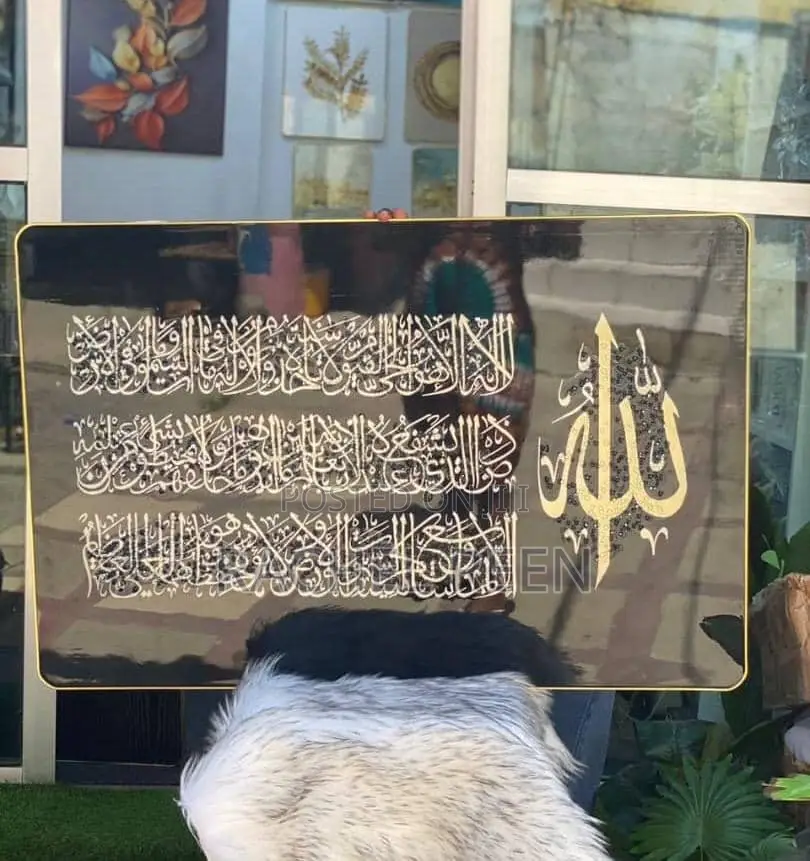 الله لا إله إلا هو الحي القيوم لا تأخذه سنة ولا نوم له ما في السموات وما في الأرض
من ذا الذي يشفع عنده إلا بإذنه يعلم ما بين أيديهم وما خلفهم ولا يحيطون بشيء من علمه
إلا بما شاء وسع كرسيه السموات والأرض ولا يؤده حفظهما وهو العلي العظيم
الله
POSTED ON